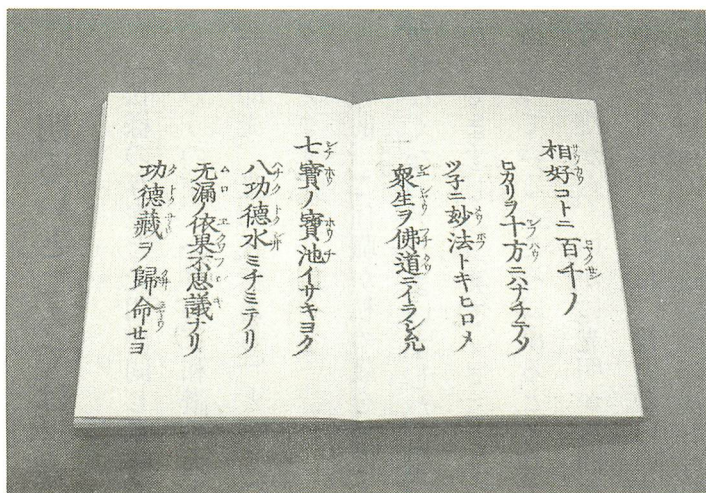 相好コトニ百千ノ
ヒカリヲ十方ニハナチテソ
ツ子ニ妙法トキヒロメ
衆生ヲ佛道ニイラシムル
七寶ノ寶池イサキヨク
八功德水ミチミテリ
无漏ノ依果不思議ナリ
功德藏ヲ歸命セヨ